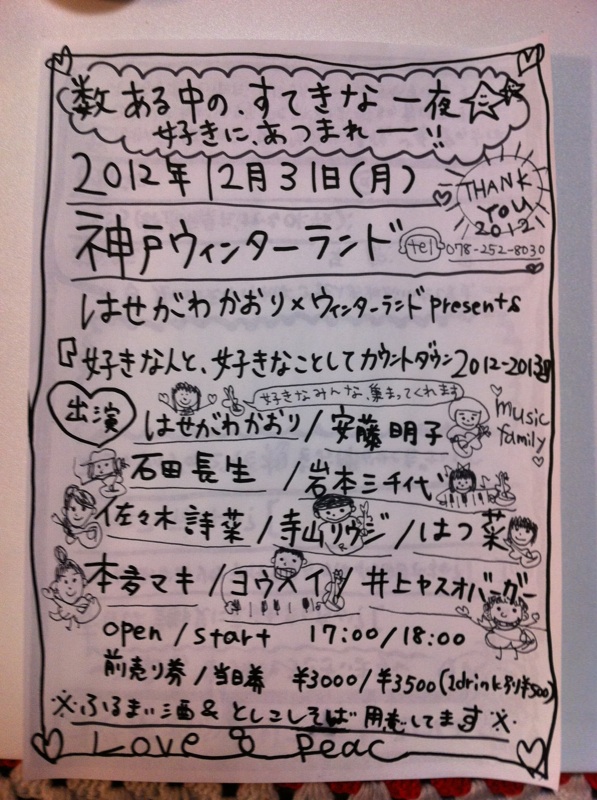 数ある中の、すてきな一夜
好きに、あつまれー!!
2012年12月31日(月)
THANK
YOU
2012!
神戸ウィンターランド
tel 078-252-8030
はせがわかおり×ウィンターランド presents
『好きな人と、好きなことしてカウントダウン2012-2013』
好きなみんな、集まってくれます
出演
はせがわかおり/安藤明子
music
family
石田長生/岩本ミチイ代
佐々木詩菜/寺山リウジ/はつ菜
本夛マキ/ヨウヘイ/井上ヤスオバーガー
open/start 17:00/18:00
前売り券/当日券 ¥3000/¥3500(1drink別り¥500)
※ふるまい酒&としこしそば用意してます※
Love & Peac